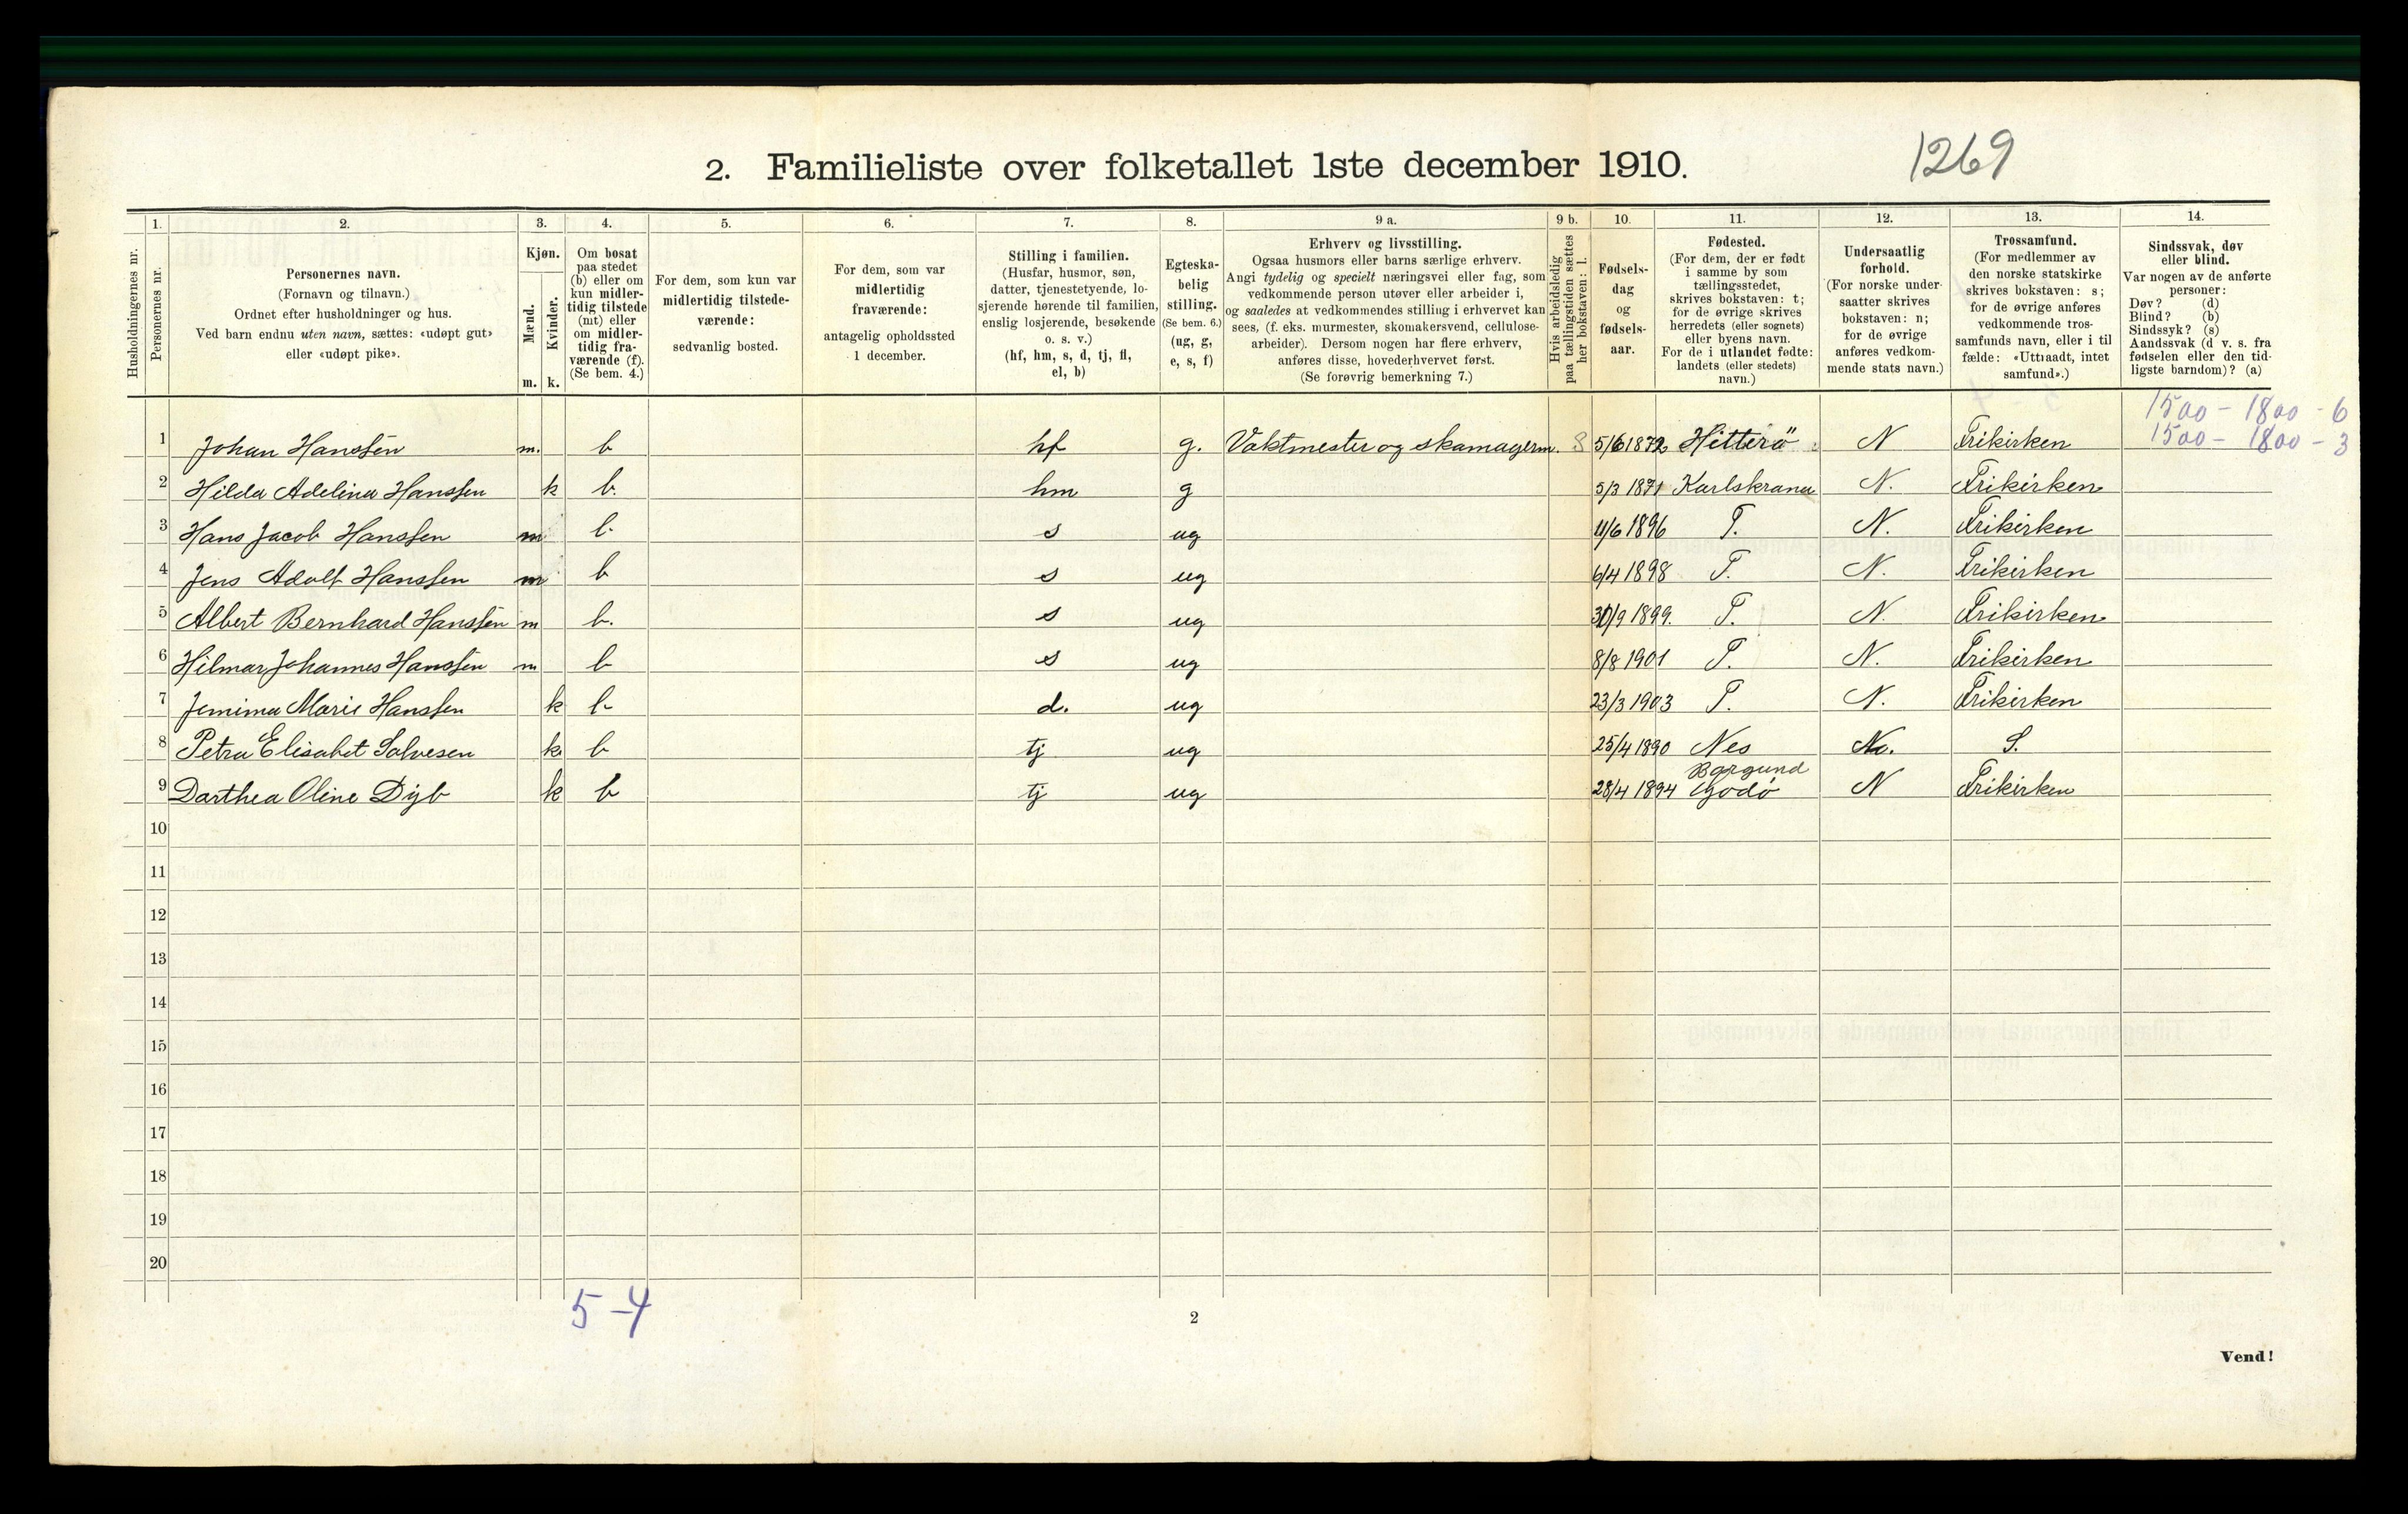 2. Familieliste over folketallet 1ste december 1910.
1269
Husholdningernes nr.
1. Personernes nr.
2. Personernes navn.
(Fornavn og tilnavn.)
Ordnet efter husholdninger og hus.
Ved barn endnu uten navn, sættes: «udøpt gut»
eller «udøpt pike».
3. Kjøn.
Mænd. m.
Kvinder. k.
4. Om bosat
paa stedet
(b) eller om
kun midler-
tidig tilstede
(mt) eller
om midler-
tidig fra-
værende (f).
(Se bem. 4.)
5. For dem, som kun var
midlertidig tilstede-
værende:
sedvanlig bosted.
6. For dem, som var
midlertidig
fraværende:
antagelig opholdssted
1 december.
7. Stilling i familien.
(Husfar, husmor, søn,
datter, tjenestetyende, lo-
sjerende hørende til familien,
enslig losjerende, besøkende
o. s. v.)
(hf, hm, s, d, tj, fl,
el, b)
8. Egteska-
belig
stilling.
(Se bem. 6.)
(ug, g,
e, s, f)
9 a. Erhverv og livsstilling.
Ogsaa husmors eller barns særlige erhverv.
Angi tydelig og specielt næringsvei eller fag, som
vedkommende person utøver eller arbeider i,
og saaledes at vedkommendes stilling i erhvervet kan
sees, (f. eks. murmester, skomakersvend, cellulose-
arbeider). Dersom nogen har flere erhverv,
anføres disse, hovederhvervet først.
(Se forøvrig bemerkning 7.)
9 b. Hvis arbeidsledig
paa tællingstiden sættes
her bokstaven: l.
10. Fødsels-
dag
og
fødsels-
aar.
11. Fødested.
(For dem, der er født
i samme by som
tællingsstedet,
skrives bokstaven: t;
for de øvrige skrives
herredets (eller sognets)
eller byens navn.
For de i utlandet fødte:
landets (eller stedets)
navn.)
12. Undersaatlig
forhold.
(For norske under-
saatter skrives
bokstaven: n;
for de øvrige
anføres vedkom-
mende stats navn.)
13. Trossamfund.
(For medlemmer av
den norske statskirke
skrives bokstaven: s;
for de øvrige anføres
vedkommende tros-
samfunds navn, eller i til-
fælde: «Uttraadt, intet
samfund».)
14. Sindssvak, døv
eller blind.
Var nogen av de anførte
personer:
Døv? (d)
Blind? (b)
Sindssyk? (s)
Aandssvak (d v. s. fra
fødselen eller den tid-
ligste barndom)? (a)
1500 - 1800 - 6
1500 - 1800 - 3
1 Johan Hanssen m. b hf g. Vaktmester og skamagerm. 5/6 1872 Hitterö N Frikirken
2 Hilda Adelina Hanssen k b. hm g 5/3 1871 Karlskrana N. Frikirken
3 Hans Jacob Hanssen m b. s ug 4/6 1896 T. N. Frikirken
4 Jens Adolf Hanssen m b s ug 6/4 1898 T. N. Frikirken
5 Albert Bernhard Hanssen m b. s ug 30/9 1899. T. N. Frikirken
6 Hilmar Johannes Hanssen m b s ug 8/8 1901 T. N. Frikirken
7 Jemima Marie Hanssen k b d. ug 23/3 1903 T. N. Frikirken
8 Petra Elisabet Salvesen k b tj ug 25/4 1890 Nes N. S.
Borgund
9 Darthea Oline Dyb k b tj ug 28/4 1894 Godø N Frikirken
10
11
12
13
14
15
16
17
18
19
20
5-4
2
Vend!